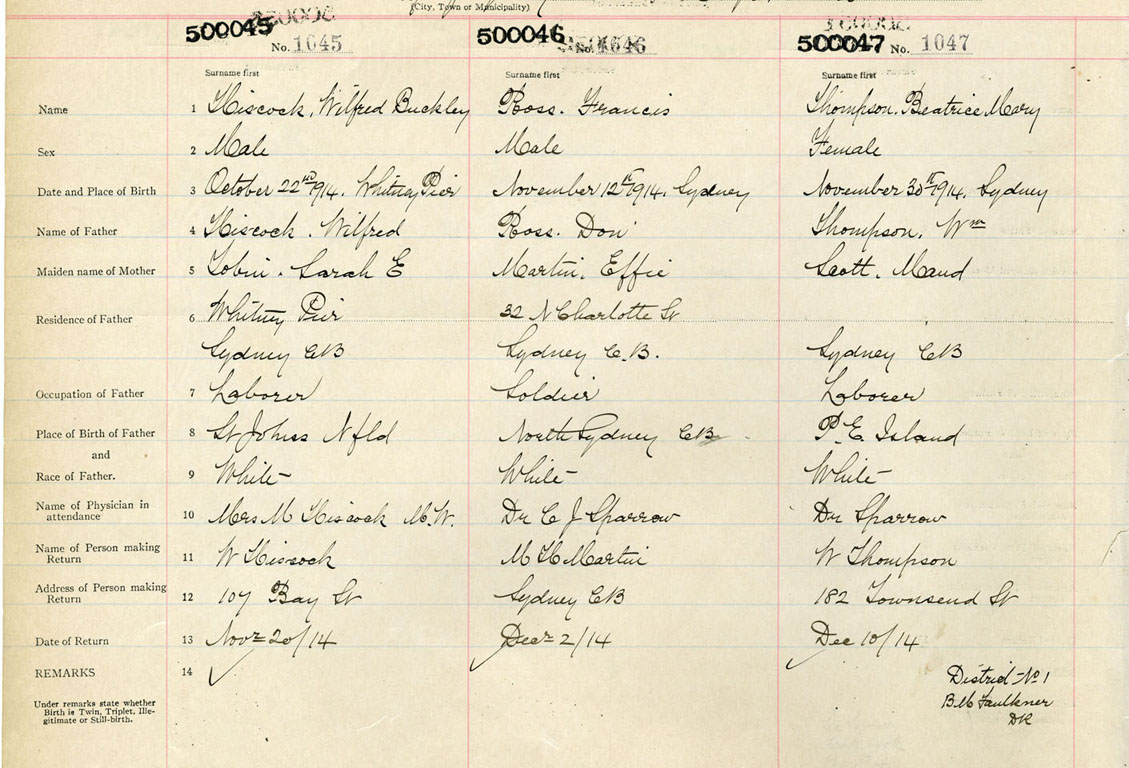 (City, Town or Municipality)
500045 500046 500047
No. 1045 No. 1046 No. 1047
Surname first Surname first Surname first
Name 1 Hiscock, Wilfred Buckley Ross. Francis Thompson. Beatrice Mary
Sex 2 Male Male Female
Date and Place of Birth 3 October 22nd 1914. Whitney Pier November 12th 1914. Sydney November 30th 1914. Sydney
Name of Father 4 Hiscock. Wilfred Ross. Don Thompson. Wm
Maiden name of Mother 5 Tobin. Sarah E Martin. Effie Scott. Maud
Residence of Father 6 Whitney Pier 32 N Charlotte St
Sydney CB Sydney C.B. Sydney CB
Occupation of Father 7 Laborer Soldier Laborer
Place of Birth of Father 8 St Johns Nfld North Sydney CB P.E. Island
and
Race of Father. 9 White White White
Name of Physician in attendance 10 Mrs M Hiscock M.W. Dr C J Sparrow Dr Sparrow
Name of Person making Return 11 W Hiscock M H Martin W Thompson
Address of Person making Return 12 107 Bay St Sydney CB 182 Townsend St
Date of Return 13 Novr 20/14 Decr 2/14 Dec 10/14
REMARKS 14 District No 1
Under remarks state whether B M Faulkner
Birth is Twin, Triplet, Ille- DR
gitimate or Still-birth.